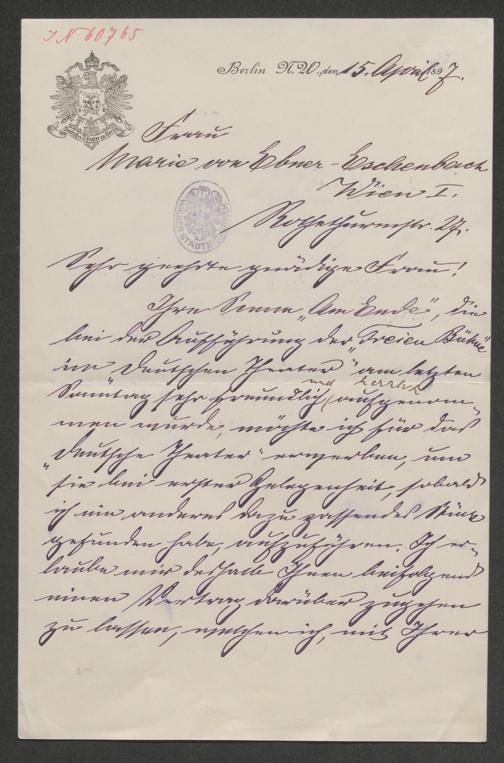 I.N. 60765
Berlin N.W., den 15. April 1897.
Frau
Marie von Ebner-Eschenbach
Wien I.
Rothethurmstr. 27.
Sehr geehrte gnädige Frau!
Ihre Scene „Am Ende“, die
bei der Aufführung der „Freien Bühne“
im Deutschen Theater am letzten
Sonntag sehr freundlich und herzlich aufgenom-
men wurde, möchte ich für das
„Deutsche Theater“ erwerben, um
sie bei erster Gelegenheit, sobald
ich ein anderes dazu passendes Stück
gefunden habe, aufzuführen. Ich er-
laube mir deshalb Ihnen beifolgend
einen Vertrag darüber zugehen
zu lassen, welchen ich, mit Ihrer